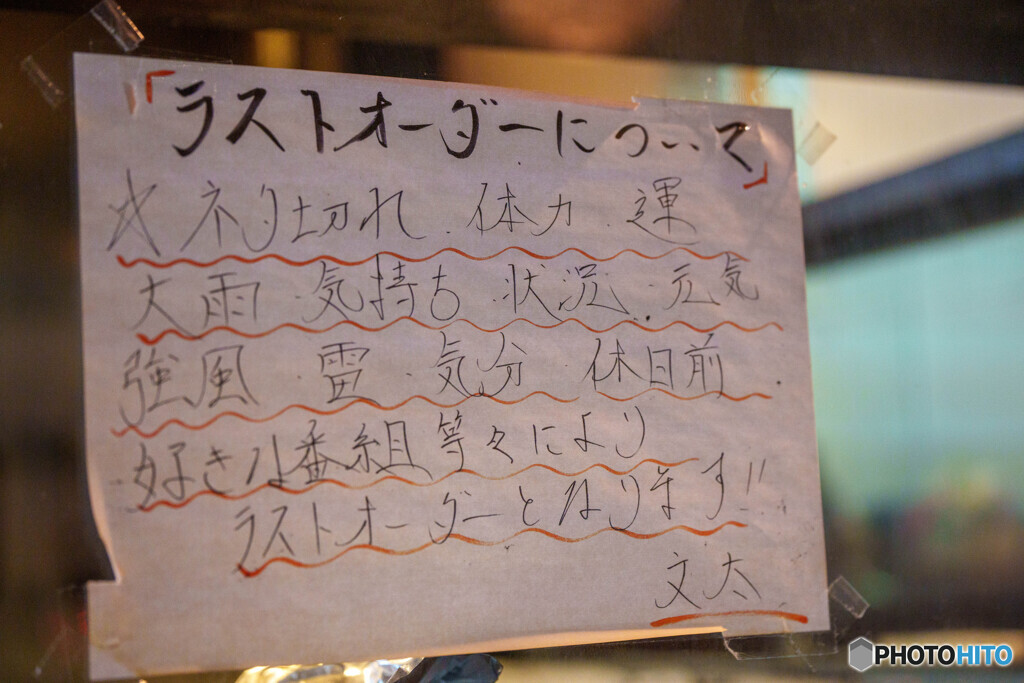 「ラストオーダーについて」
☆ネタ切れ・体力・運
大雨・気持ち・状況・元気
強風・雷・気分・休日前・
好きな番組等々により
ラストオーダーとなります!!
文太
PHOTOHITO